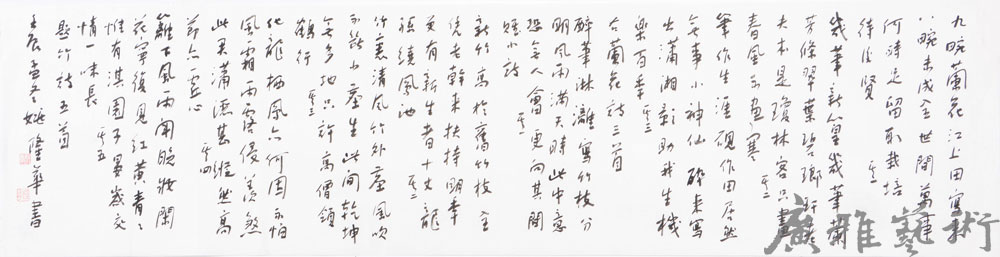 九畹蘭花江上田寫來
八畹未成全世間萬事
何時足留取栽培
待後賢 其一
幾筆新篁幾筆蘭
芳條翠葉碧琅玕
大夫本是瓊林客只畫
春風不畫寒 其二
筆作生涯硯作田居然
無事小神仙醉來寫
出瀟湘影助我生機
樂百年 其三
合蘭花詩三首
醉筆淋漓寫竹枝分
明風雨滿天時此中意
恐無人會更向其間
題小詩 其一
新竹高於舊竹枝全
憑老幹來扶持明年
更有新生者十丈龍
孫繞鳳池 其二
竹裏清風竹外塵風吹
不斷少塵生此間乾坤
無多地只許高僧領
鶴行 其三
化龍棲鳳亦何因不怕
風霜雨露侵羨煞
此君瀟灑甚縱然高
節亦虛心 其四
籬下風雨聞晚妝閒
花寥復見紅黃青々
惟有淇園歲交
情一味長 其五
題竹詩五首
壬辰孟冬姚隆華書
廣雅藝術